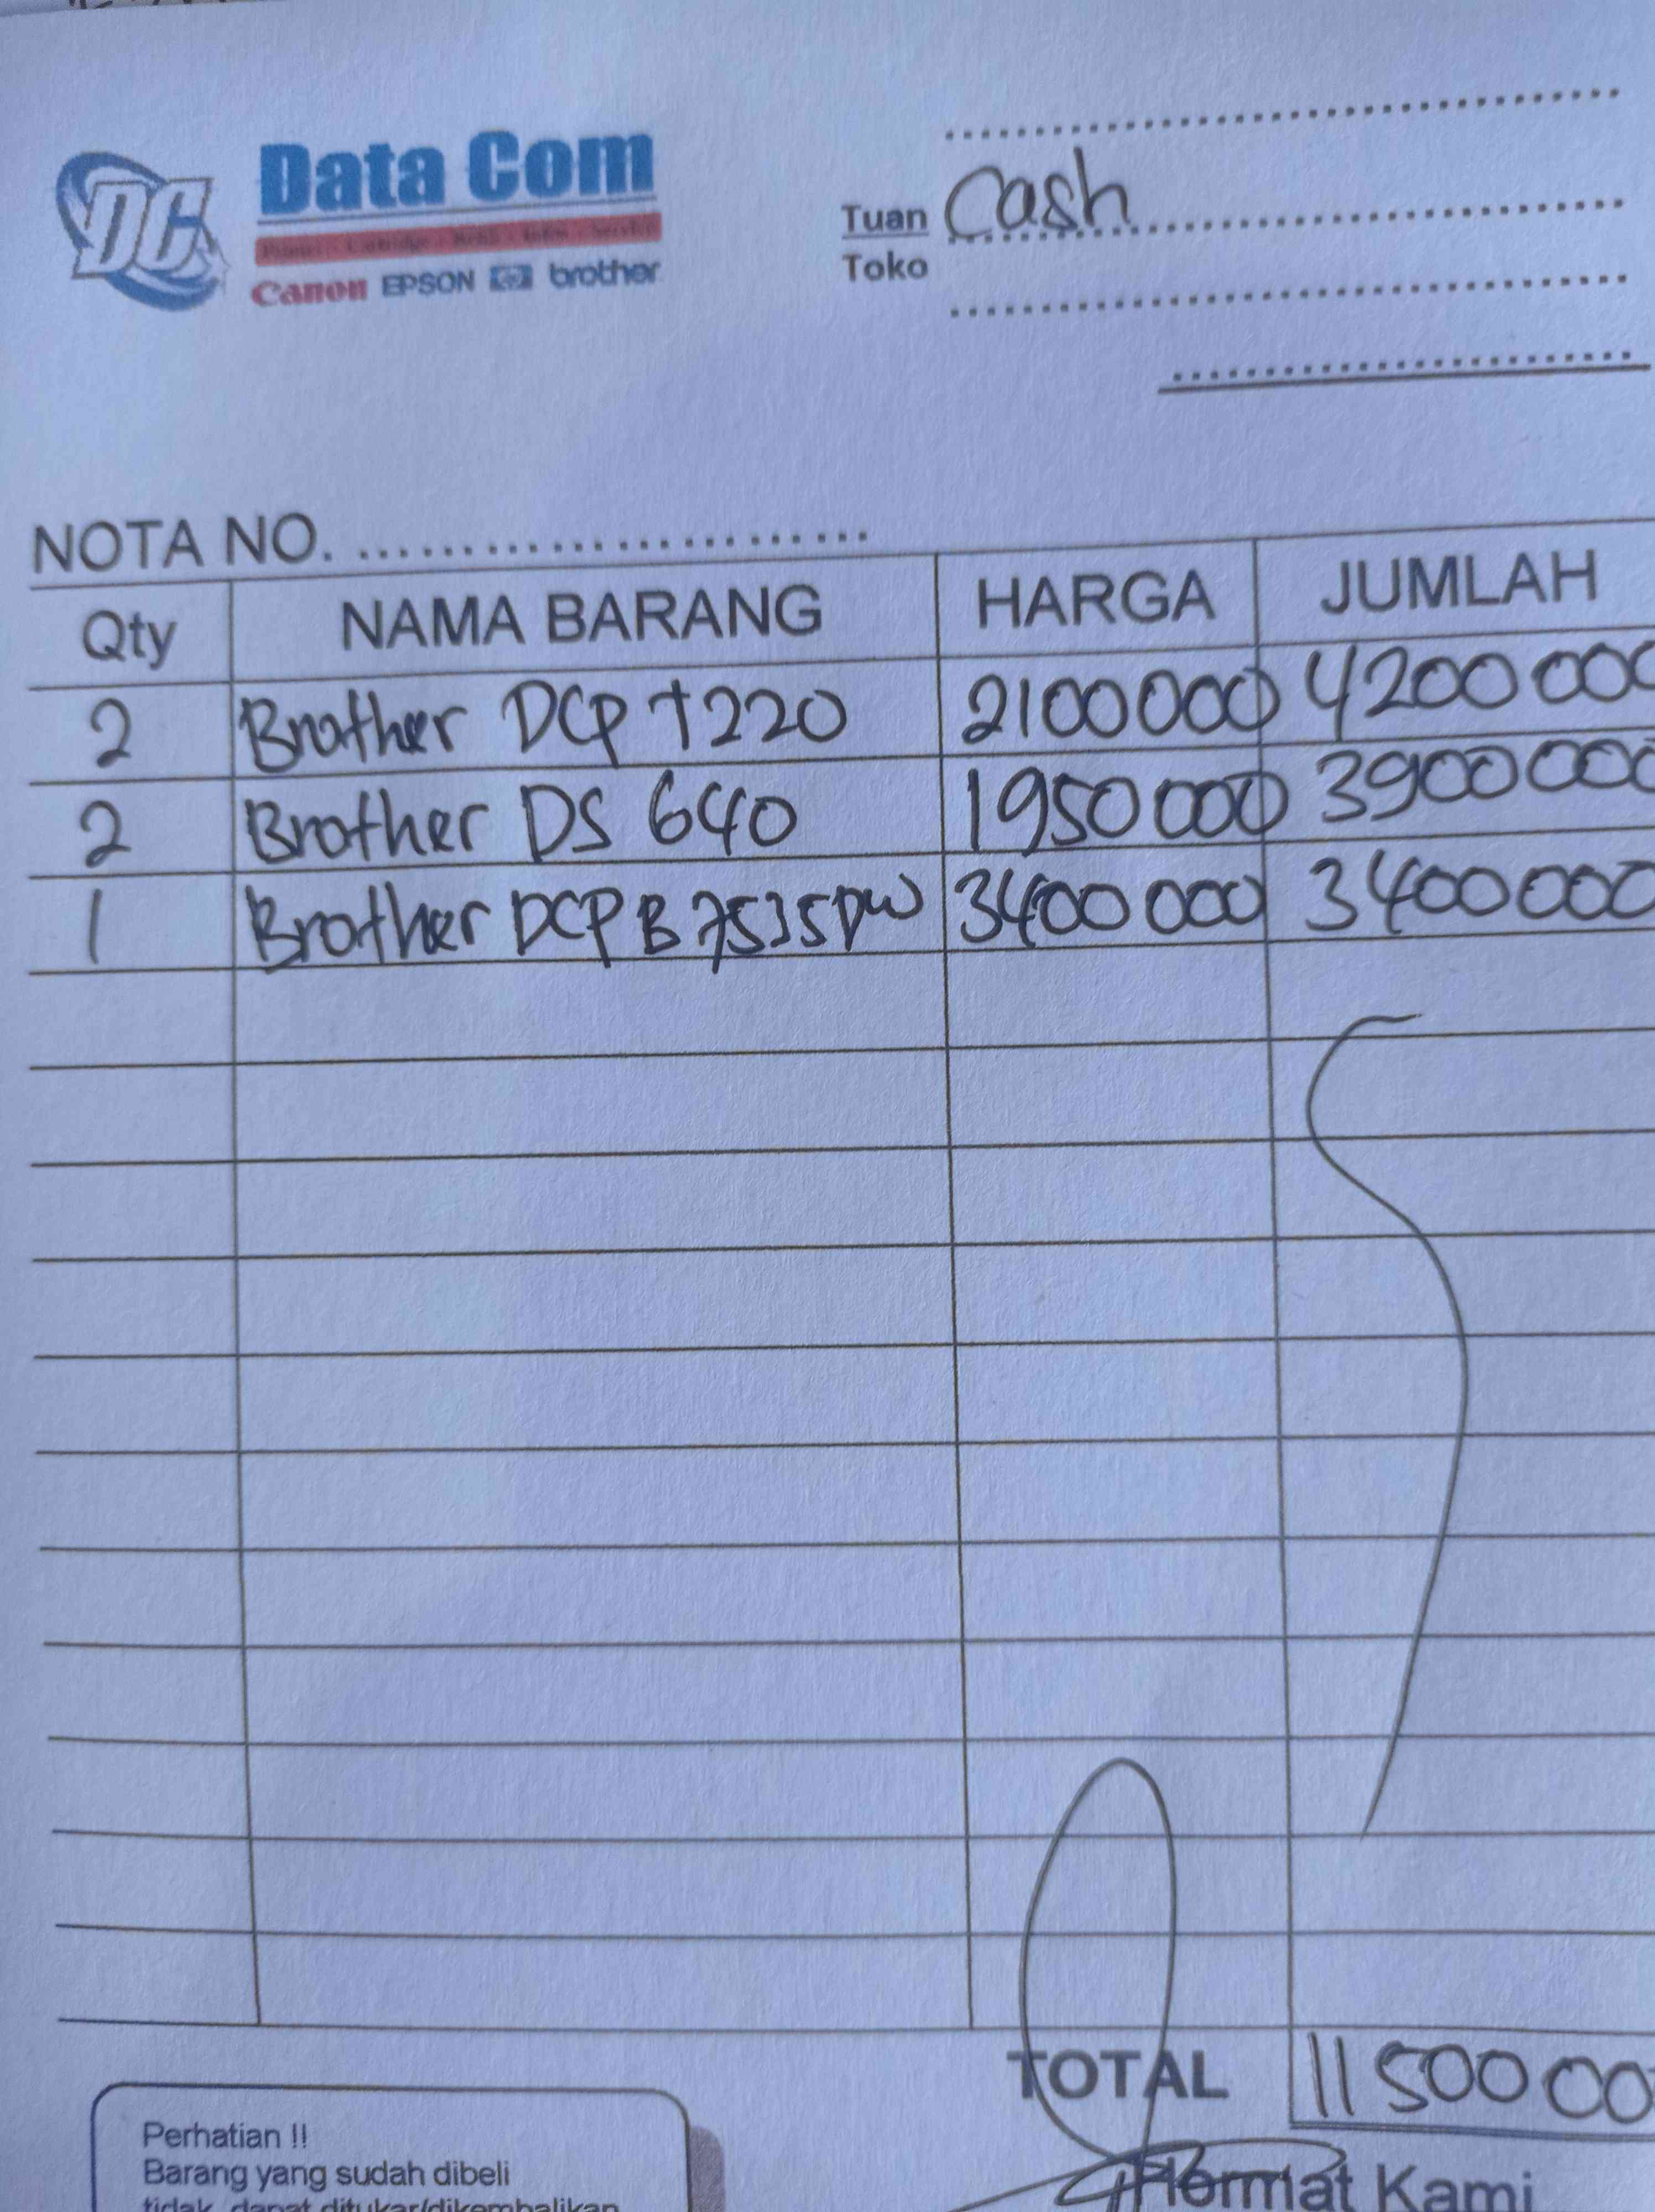 DC
Data Com
Canon EPSON hp brother
Tuan Cash
Toko
NOTA NO.
Qty NAMA BARANG HARGA JUMLAH
2 Brother DCP T220 2100000 4200000
2 Brother DS 640 1950000 3900000
1 Brother DCP B 7535DW 3400000 3400000
TOTAL 11500 00
Perhatian !!
Barang yang sudah dibeli
tidak dapat ditukar/dikembalikan
Hormat Kami